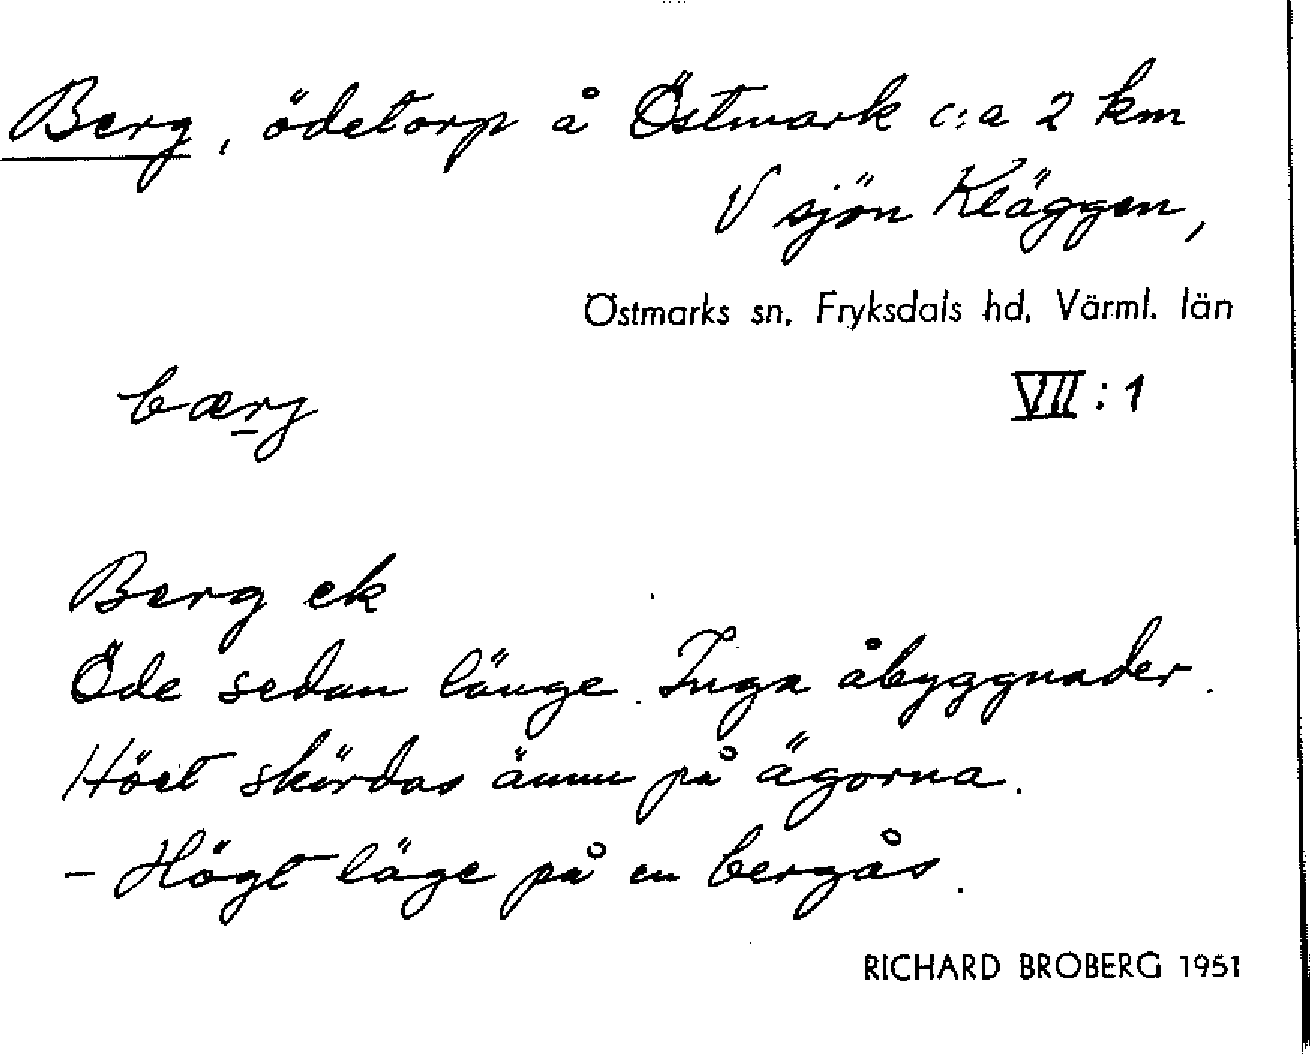 Berg, ödetorp å Östmark c:a 2 km
V sjön Kläggen,
Östmarks sn, Fryksdals hd, Värml. län
bærj
VII:1
Berg ek
Öde sedan länge. Inga åbyggnader.
Höet skördas ännu på ägorna.
- Högt läge på en bergås.
RICHARD BROBERG 1951